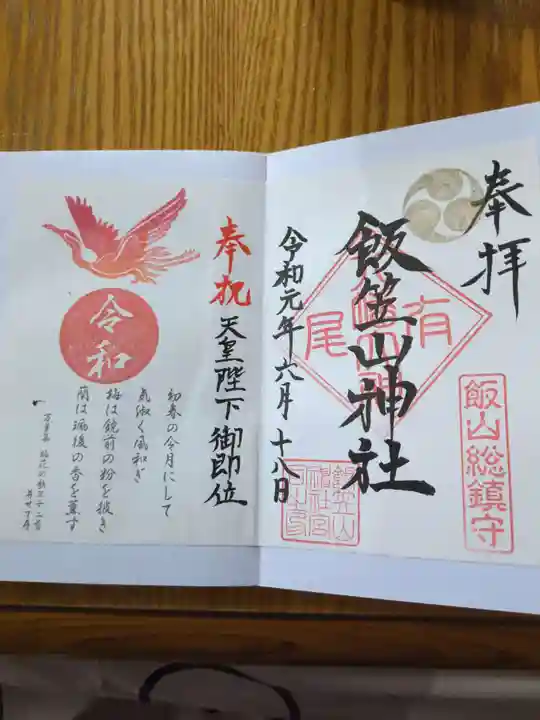 奉拝
飯笠山神社
有尾
飯山総鎮守
令和元年六月十八日
奉祝 天皇陛下御即位
令和
初春の令月にして
気淑く風和ぎ
梅は鏡前の粉を披き
蘭は珮後の香を薫す
万葉集 梅花の歌三十二首
并せて序